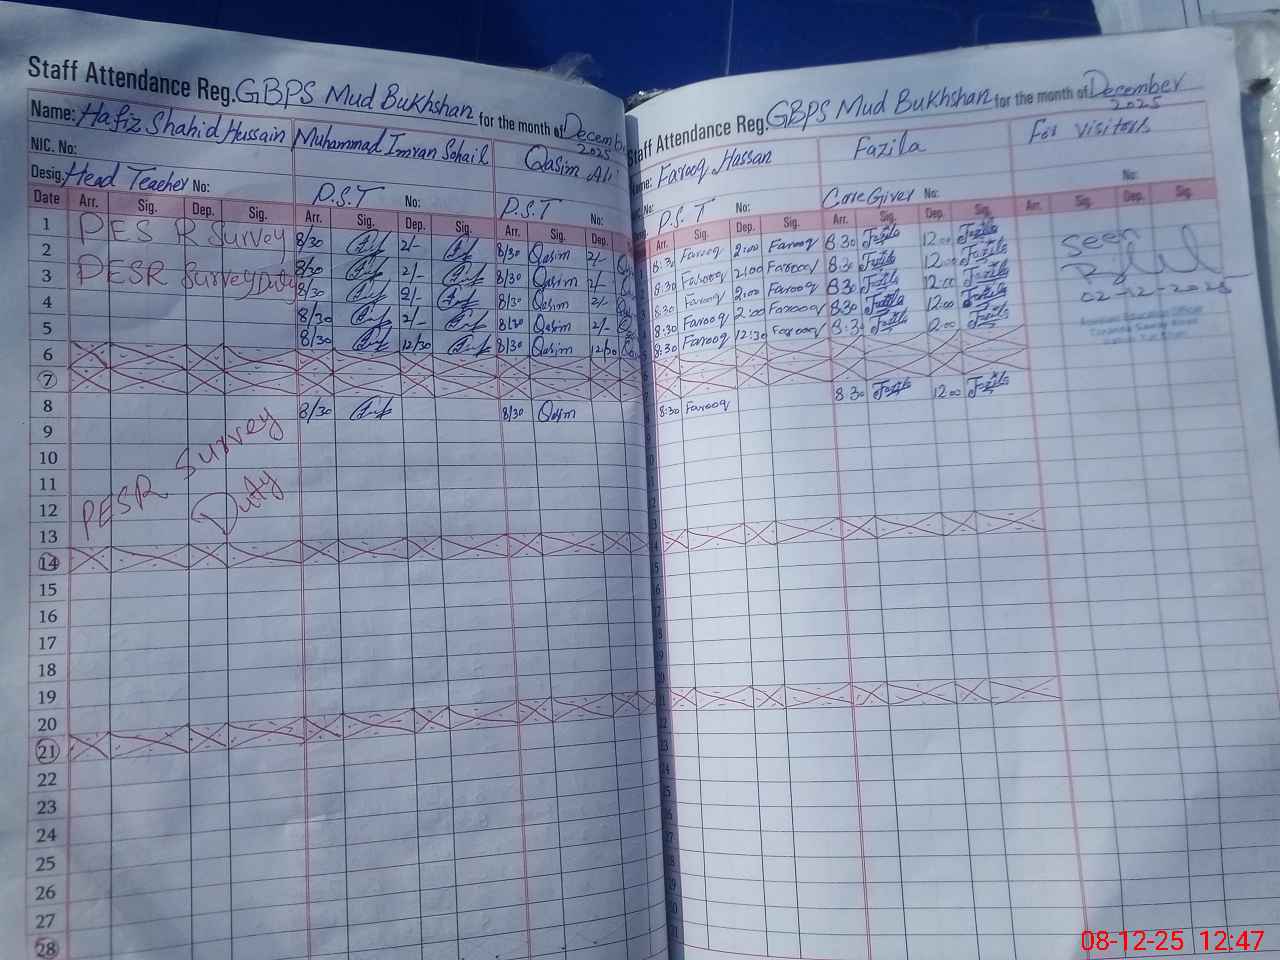 Staff Attendance Reg. GBPS Mud Bukhshan for the month of Decemb
2025
Name: Hafiz Shahid Hussain Muhammad Imran Sohail Qasim Ali
NIC. No:
Desig. Head Teacher No: P.S.T No: P.S.T No:
Date Arr. Sig. Dep. Sig. Arr. Sig. Dep. Sig. Arr. Sig. Dep.
1 PESR Survey 8/30 2/- 8/30 Qasim 2/-
2 8/30 2/- 8/30 Qasim 2/-
3 PESR Survey Duty 8/30 2/- 8/30 Qasim 2/-
4 8/30 2/- 8/30 Qasim 2/-
5 8/30 12/30 8/30 Qasim 12/30
6
7
8 8/30 8/30 Qasim
9
10
11
12
PESR Survey
Duty
13
14
15
16
17
18
19
20
21
22
23
24
25
26
27
28
Staff Attendance Reg. GBPS Mud Bukhshan for the month of December
2025
Name: Farooq Hassan Fazila For visitors
No: P.S.T No: Care Giver No: No:
Arr. Sig. Dep. Sig. Arr. Sig. Dep. Sig. Arr. Sig. Dep. Sig.
8:30 Farooq 2:00 Farooq 8 30 Fazila 12 00 Fazila
8:30 Farooq 2:00 Farooq 8 30 Fazila 12 00 Fazila
8:30 Farooq 2:00 Farooq 8 30 Fazila 12 00 Fazila
8:30 Farooq 2:00 Farooq 8 30 Fazila 12 00 Fazila
8:30 Farooq 12:30 Farooq 8 30 Fazila 12 00 Fazila
8:30 Farooq 8 30 Fazila 12 00 Fazila
Seen
02-12-2025
08-12-25 12:47